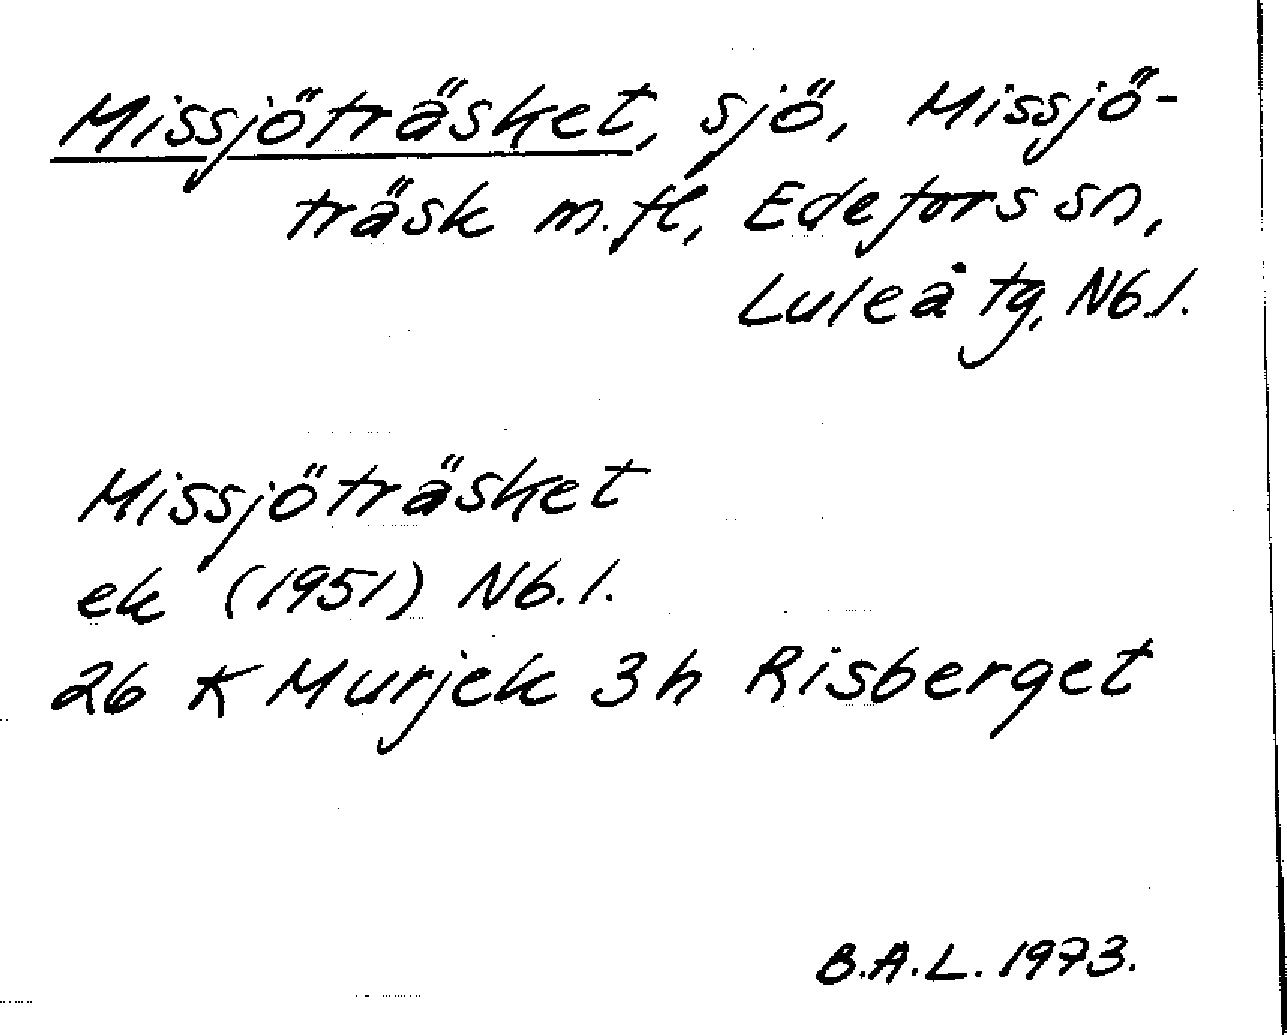 Missjöträsket, sjö, Missjö-
träsk m.fl, Edefors sn,
Luleå tg, Nb.l.
Missjöträsket
ek (1951) Nb.l.
26 K Murjek 3h Risberget
B.A.L. 1973.